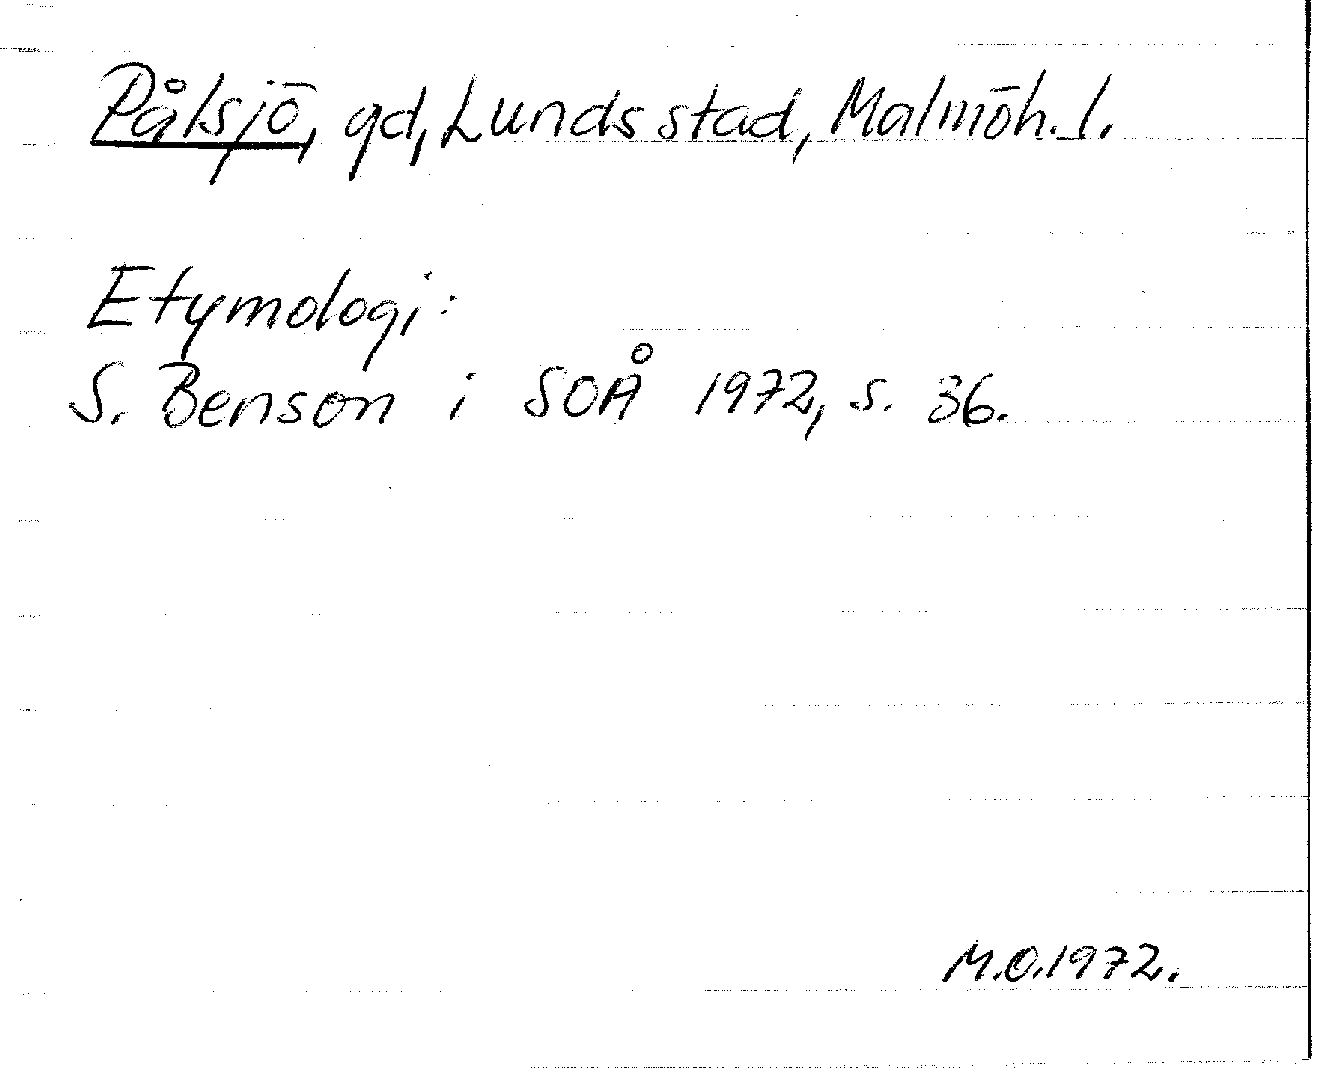 Pålsjö, gd, Lunds stad, Malmöh. l.
Etymologi:
S. Benson i SOÅ 1972, s. 36.
M.O. 1972.